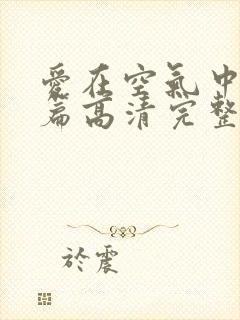 愛在空氣中
篇高清完整
於震